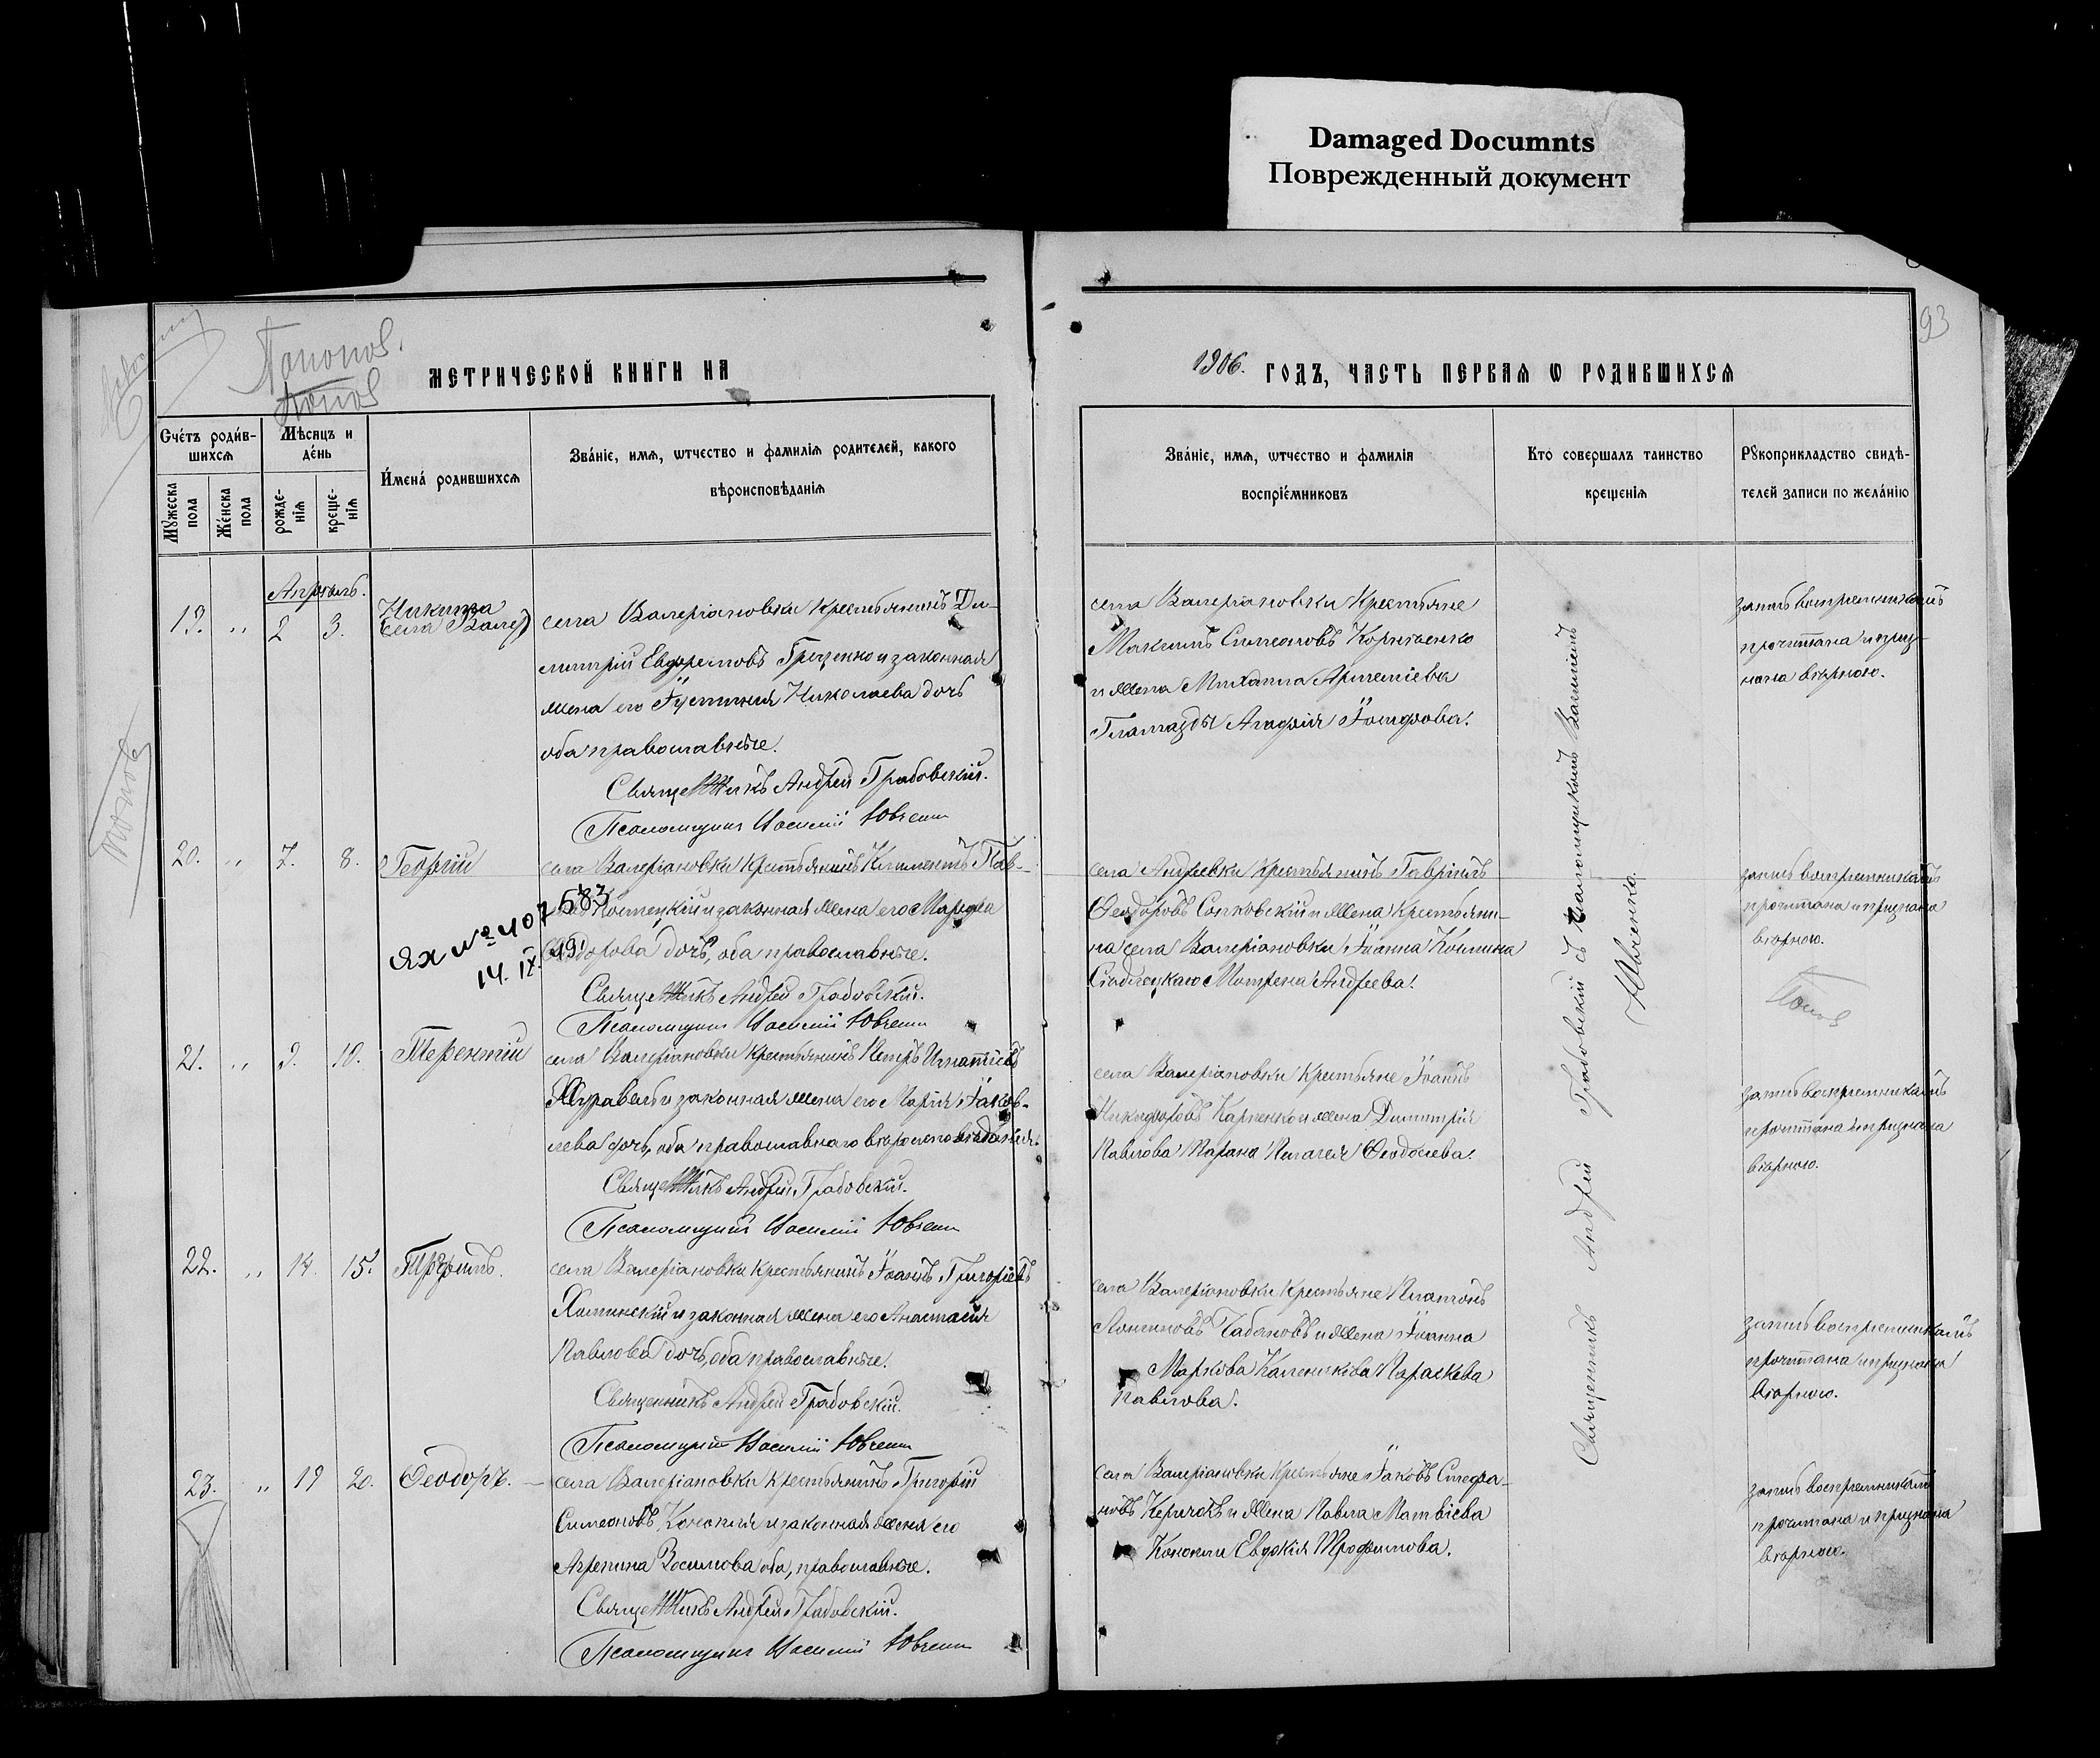 Damaged Documnts
Поврежденный документ
93
Попов
Попов
МЕТРИЧЕСКОЙ КНИГИ НА
1906. ГОДЪ, ЧАСТЬ ПЕРВАЯ Ѡ РОДИВШИХСЯ
Счетъ родив-
шихся
Мужеска
пола
Женска
пола
Мѣсяцъ и
день
рожде-
нія
креще-
нія
Имена родившихся
Званіе, имя, ѡтчество и фамилія родителей, какого
вѣроисповѣданія
Званіе, имя, ѡтчество и фамилія
воспріемниковъ
Кто совершалъ таинство
крещенія
Рукоприкладство свидѣ-
телей записи по желанію
Апрѣль.
19. „ 2 3. Никита
села Валеріановки крестьянинъ Ди-
митрій Евфремовъ Гриценко и законная
жена его Іустинія Николаева дочь
оба православные.
Священникъ Андрей Грабовскій.
Псаломщикъ Василій Ювченко
села Валеріановки крестьяне
Максимъ Симеоновъ Корниенко
и жена Михаила Артеміева
Агафія
запись воспріемникамъ
прочитана и приз-
нана вѣрною.
20. „ 7. 8. Георгій
села Валеріановки крестьянинъ Климентъ Пав-
и законная жена его Марфа
дочь, оба православные.
Священникъ Андрей Грабовскій.
Псаломщикъ Василій Ювченко
ЯХ № 407583
14. IX.
села Андреевки крестьянинъ Гавріилъ
Ѳеодоровъ Сопковскій и жена крестьяни-
на села Валеріановки Іоанна
Матрена Андреева.
запись воспріемникамъ
прочитана и признана
вѣрною.
Попов
21. „ 9. 10. Терентій
села Валеріановки крестьянинъ Петръ Игнатіевъ
Журавель и законная жена его Марія Іаков-
лева дочь, оба православнаго вѣроисповѣданія.
Священникъ Андрей Грабовскій.
Псаломщикъ Василій Ювченко
села Валеріановки крестьяне Іоаннъ
Никифоровъ Карпенко и жена Димитрія
Павлова Пелагея Ѳеодосіева.
запись воспріемникамъ
прочитана и признана
вѣрною.
22. „ 14. 15. Трофимъ.
села Валеріановки крестьянинъ Іоаннъ Григоріевъ
и законная жена его Анастасія
Павлова дочь, оба православные.
Священникъ Андрей Грабовскій.
Псаломщикъ Василій Ювченко
села Валеріановки крестьяне Платонъ
Лонгиновъ Чабановъ и жена Іоанна
Маркова Параскева
Павлова.
запись воспріемникамъ
прочитана и признана
вѣрною.
23. „ 19 20. Ѳеодоръ.
села Валеріановки крестьянинъ Григорій
Симеоновъ и законная жена его
Агрепина оба, православные.
Священникъ Андрей Грабовскій.
Псаломщикъ Василій Ювченко
села Валеріановки крестьяне Іаковъ Стефа-
новъ и жена Павла Матвіева
Евдокія Трофимова.
запись воспріемникамъ
прочитана и признана
вѣрною.
Священникъ Андрей Грабовскій съ псаломщикомъ Василіемъ
Ювченко.